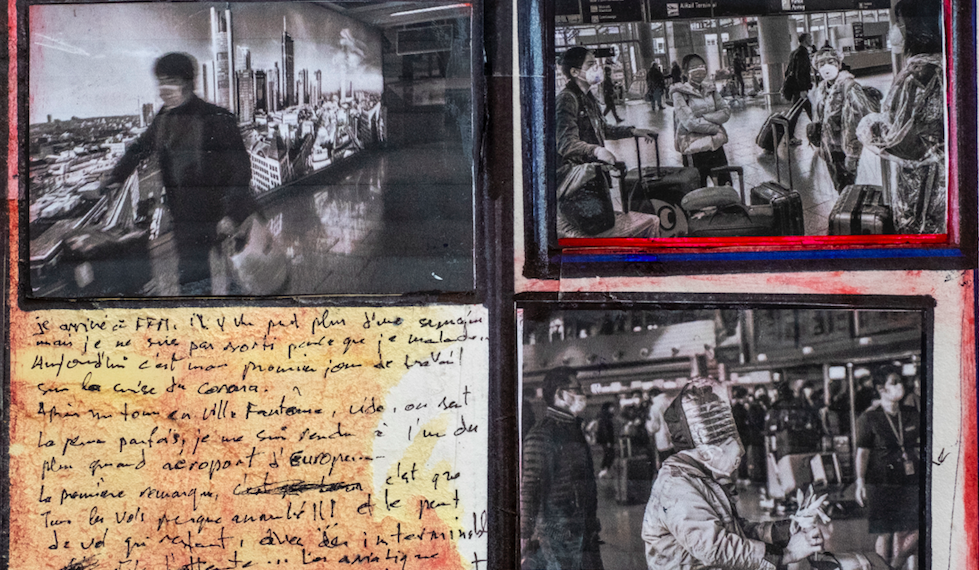 A/Rail Terminal
je arrivé à FFM. il y a un peu plus d'une semaine
mais je ne suis pas sorti parce que je malade.
Aujourd'hui c'est mon premier jour de travail
sur la crise du Corona.
Après un tour en ville Fantôme, vide, on sent
la peur parfois, je me suis rendu à l'un du
plus grand aéroport d'Europe
la première remarque, c'est que
Tous les vols presque annulé!!! et le peu
de vol qui restent, avec des interminable
l'attente... Les asiatique